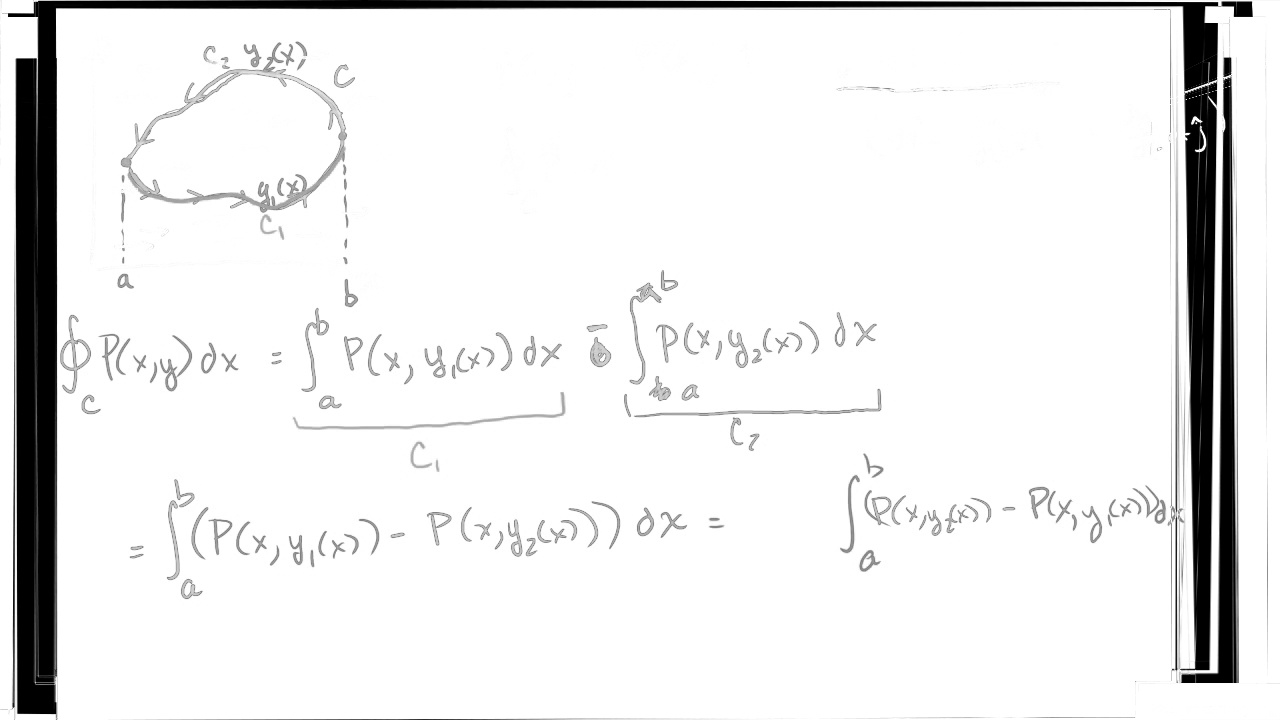 C₂ y₂(x) C
y₁(x)
C₁
a b
∮_C P(x,y) dx = ∫_a^b P(x, y₁(x)) dx - ∫_a^b P(x, y₂(x)) dx
C₁ C₂
= ∫_a^b (P(x, y₁(x)) - P(x, y₂(x))) dx = ∫_a^b (P(x, y₂(x)) - P(x, y₁(x))) dx